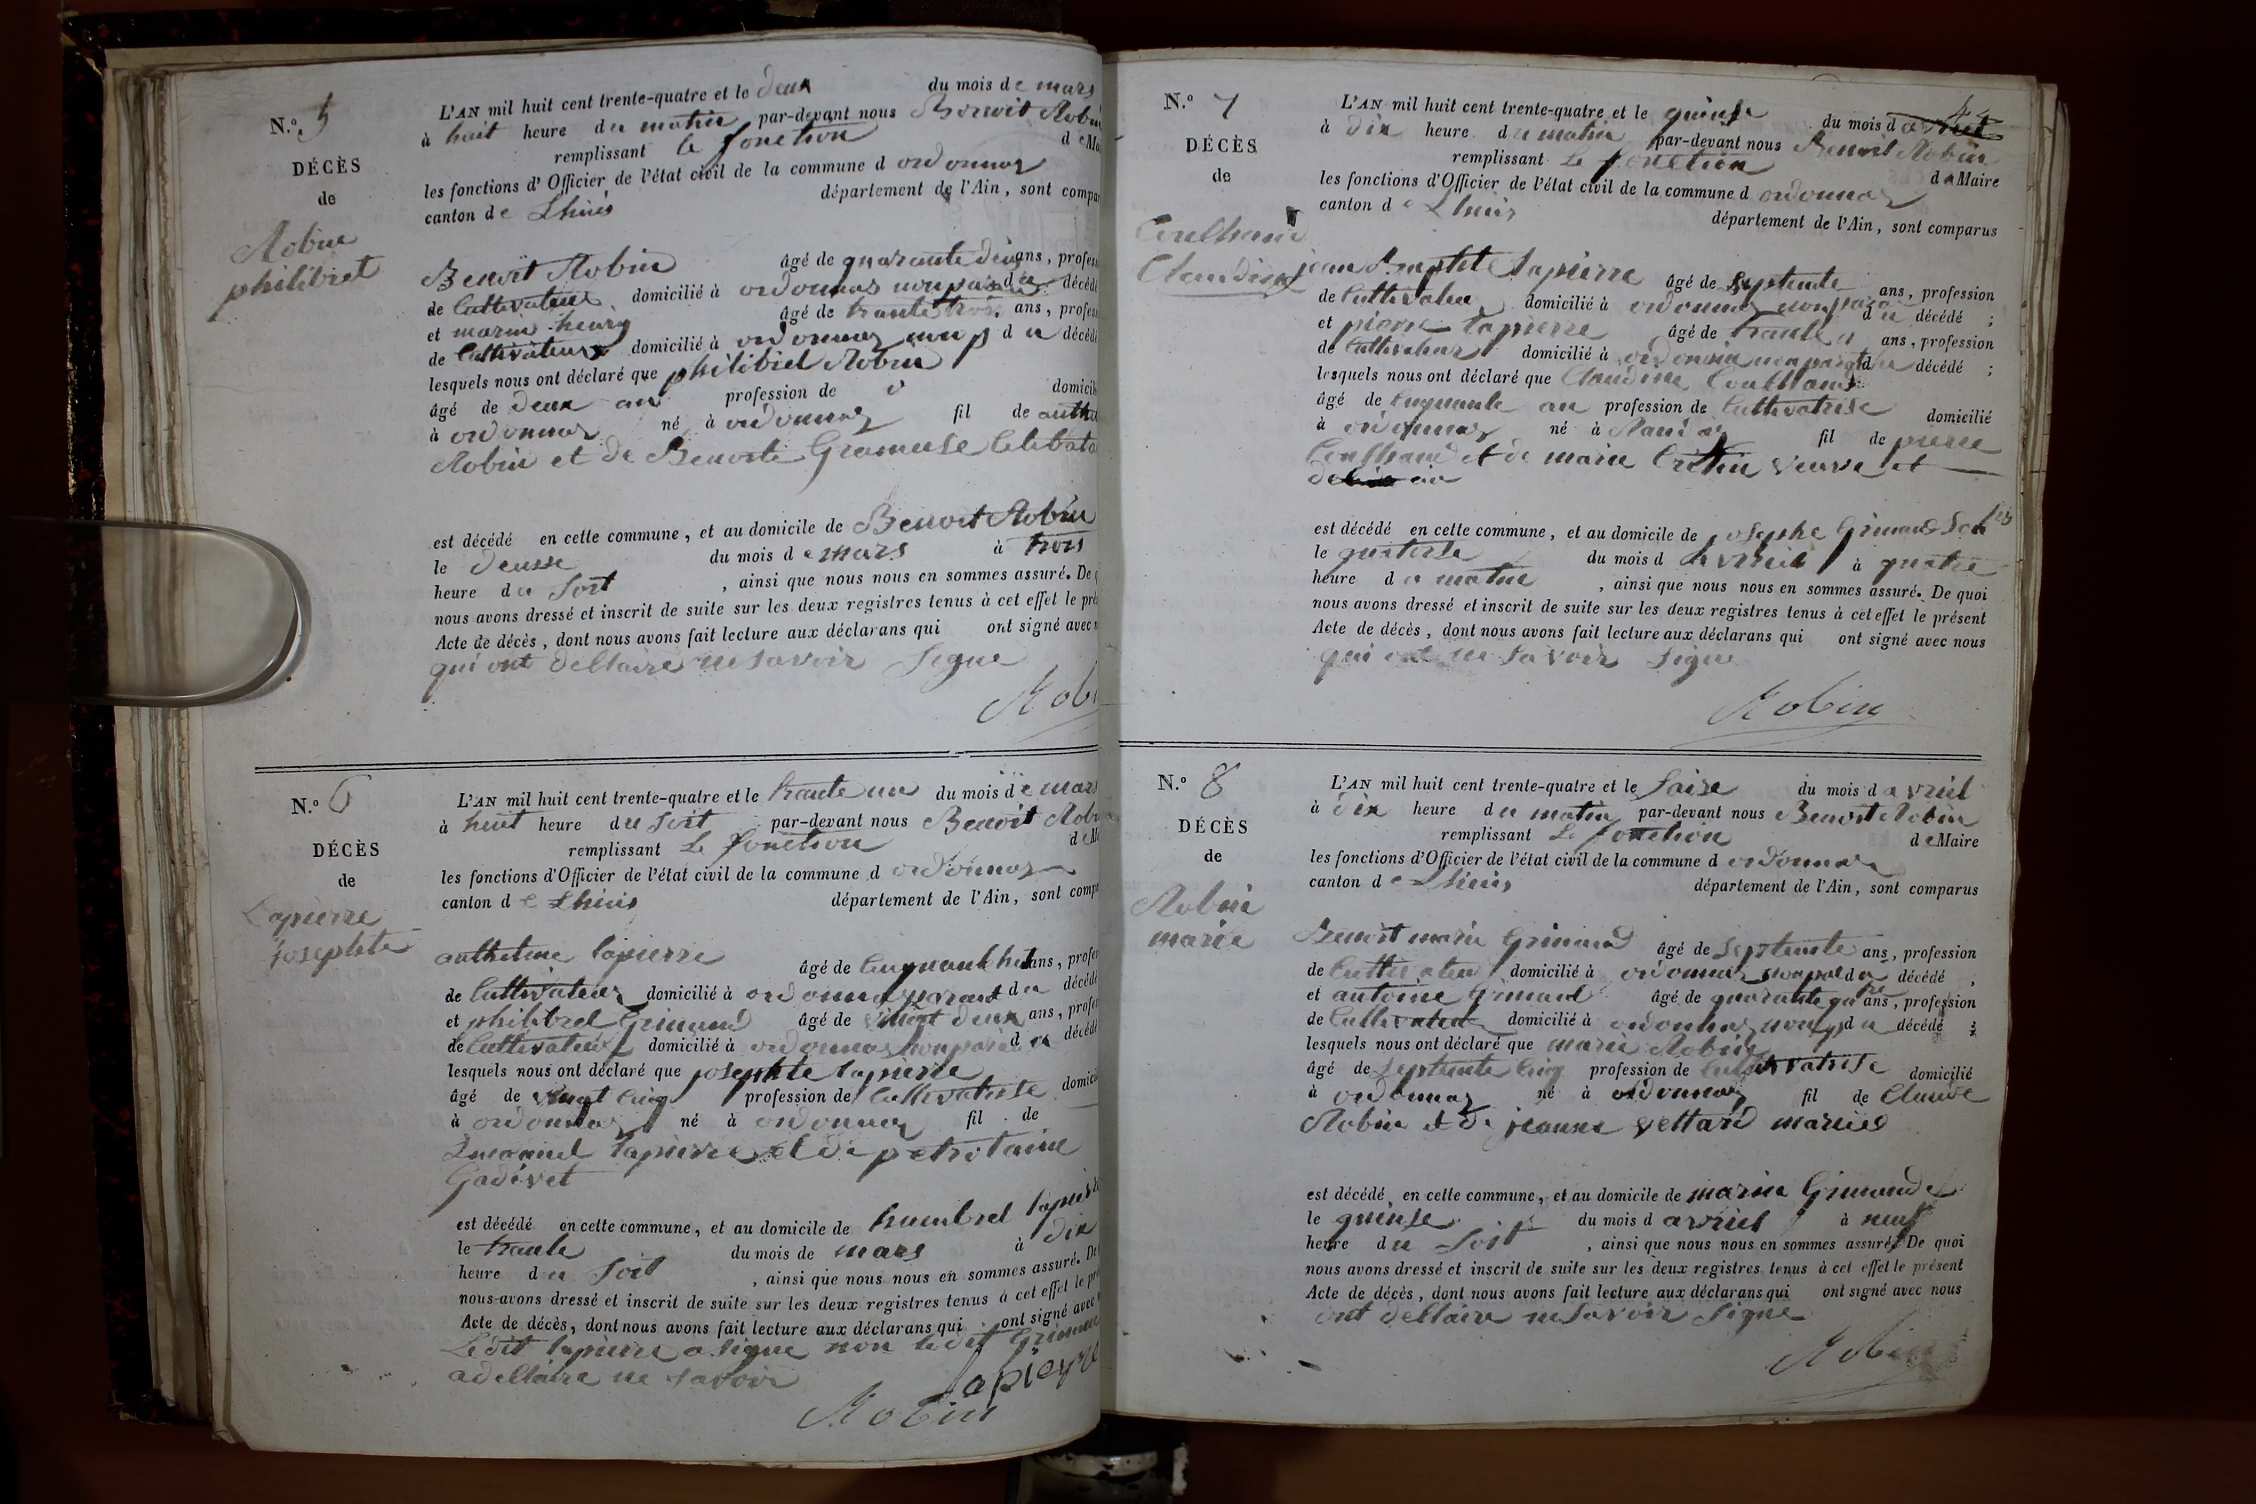 N.º 5
DÉCÈS
de
Robin
philibert
L'AN mil huit cent trente-quatre et le deux du mois de mars
à huit heure du matin par-devant nous Benoit Robin
remplissant le fonction de Ma
les fonctions d'Officier de l'état civil de la commune d ordonnaz
canton de Lhuis département de l'Ain, sont compar
Benoit Robin âgé de quarante deux ans, profess
de Cultivateur domicilié à ordonnas non parent du décédé
et marin henry âgé de trante trois ans, profess
de Cultivateur domicilié à ordonnaz non p du décédé
lesquels nous ont déclaré que philibiel Robin
âgé de deux an profession de domicili
à ordonnaz né à ordonnaz fil de anth
Robin et de Benoite Gramuse Celibata
est décédé en cette commune, et au domicile de Benoit Robin
le deusse du mois de mars à trois
heure du soit, ainsi que nous nous en sommes assuré. De q
nous avons dressé et inscrit de suite sur les deux registres tenus à cet effet le prés
Acte de décès, dont nous avons fait lecture aux déclarans qui ont signé avec n
qui ont dellaire ne savoir signe
Robi
N.º 6
DÉCÈS
de
Lapierre
josephte
L'AN mil huit cent trente-quatre et le trante un du mois de mars
à huit heure du soit par-devant nous Benoit Robin
remplissant le fonction de M
les fonctions d'Officier de l'état civil de la commune d ordonnaz
canton de Lhuis département de l'Ain, sont compa
antheleme lapierre âgé de Cinquante huit ans, profes
de Cultivateur domicilié à ordonnaz parant du décédé
et philibrel Grimand âgé de vingt deux ans, profes
de Cultivateur domicilié à ordonnas non parent du décédé
lesquels nous ont déclaré que josephte lapierre
âgé de vingt cinq profession de Cultivatrise domicil
à ordonnaz né à ordonnaz fil de
lapierre et de
Gadivet
est décédé en cette commune, et au domicile de humbrel lapierre
le trante du mois de mars à dix
heure du soit, ainsi que nous nous en sommes assuré. De
nous avons dressé et inscrit de suite sur les deux registres tenus à cet effet le pré
Acte de décès, dont nous avons fait lecture aux déclarans qui ont signé avec
Ledit lapierre a signe non ledit Grimand
a dellaire ne savoir
lapierre
Robin
N.º 7
DÉCÈS
de
Coulhand
Claudine
L'AN mil huit cent trente-quatre et le quinse du mois d avril
à dix heure du matin par-devant nous Benoit Robin
remplissant le fonction de Maire
les fonctions d'Officier de l'état civil de la commune d ordonnaz
canton de Lhuis département de l'Ain, sont comparus
jean Baptite lapierre âgé de septente ans, profession
de Cultivateu domicilié à ordonnaz non para du décédé ;
et pierre lapierre âgé de trante ans, profession
de Cultivateur domicilié à ordonnaz non parent du décédé ;
lesquels nous ont déclaré que Claudine Coulhand
âgé de Cinquante an profession de Cultivatrise domicilié
à ordonnaz né à fil de pierre
Coulhand et de marie Cretin veuve et
est décédé en cette commune, et au domicile de josephe Grimand
le quatorse du mois d avriil à quatre
heure du matin, ainsi que nous nous en sommes assuré. De quoi
nous avons dressé et inscrit de suite sur les deux registres tenus à cet effet le présent
Acte de décès, dont nous avons fait lecture aux déclarans qui ont signé avec nous
qui ont ne savoir signe
Robin
N.º 8
DÉCÈS
de
Robin
marie
L'AN mil huit cent trente-quatre et le saise du mois d avriil
à dix heure du matin par-devant nous Benoit Robin
remplissant le fonction de Maire
les fonctions d'Officier de l'état civil de la commune d ordonnaz
canton de Lhuis département de l'Ain, sont comparus
Benoit marie Grimand âgé de septente ans, profession
de Cultivateur domicilié à ordonnaz non par du décédé ;
et antoine Grimand âgé de quarante quatre ans, profession
de Cultivateur domicilié à ordonnaz non p du décédé ;
lesquels nous ont déclaré que marie Robin
âgé de septente Cinq profession de Cultivatrise domicilié
à ordonnaz né à ordonnaz fil de Claude
Robin et de jeanne vettard mariée
est décédé en cette commune, et au domicile de marie Grimand
le quinse du mois d avriel à neuf
heure du soit, ainsi que nous nous en sommes assuré. De quoi
nous avons dressé et inscrit de suite sur les deux registres tenus à cet effet le présent
Acte de décès, dont nous avons fait lecture aux déclarans qui ont signé avec nous
ont dellaire ne savoir signe
Robin